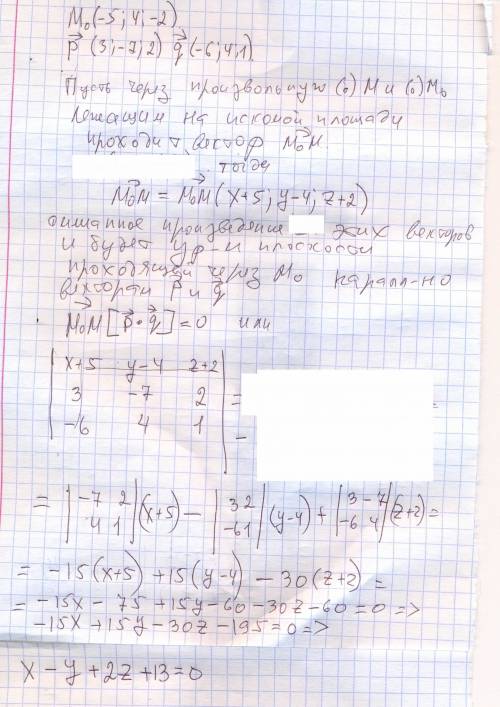 M₀(-5; 4; -2)
p⃗ (3; -7; 2) q⃗ (-6; 4; 1).
Пусть через произвольную (·) M и (·) M₀
лежащим на искомой площади
проходит вектор M₀M.
тогда
M₀M = M₀M (x+5; y-4; z+2)
смешанное произведение этих векторов
и будет ур-м плоскости
проходящей через M₀ паралл-но
векторам p⃗ и q⃗
M₀M [p⃗ · q⃗] = 0 или
| x+5 y-4 z+2 |
| 3 -7 2 | =
| -6 4 1 | -
= | -7 2 ; 4 1 | (x+5) - | 3 2 ; -6 1 | (y-4) + | 3 -7 ; -6 4 | (z+2) =
= -15(x+5) + 15(y-4) - 30(z+2) =
= -15x - 75 + 15y - 60 - 30z - 60 = 0 =>
-15x + 15y - 30z - 195 = 0 =>
x - y + 2z + 13 = 0